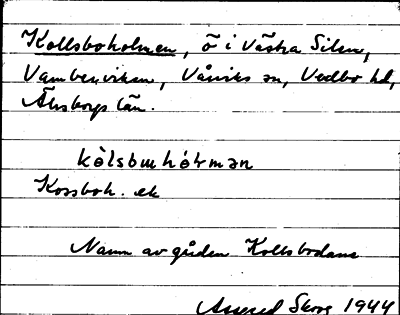 Kollsboholmen, ö i Västra Silen,
Vambenviken, Vårviks sn, Vedbo hd,
Älvsborgs län.
kòlsbωhólmən
Korsbok. ek
Namn av gården Kollsbodane
Assered Skog 1944